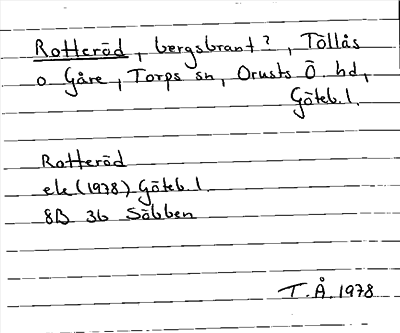 Rotteröd, bergsbrant?, Töllås
o Gåre, Torps sn, Orusts Ö. hd,
Göteb. l.
Rotteröd
ek (1978) Göteb. l.
8B 3b Säbben
T. Å. 1978